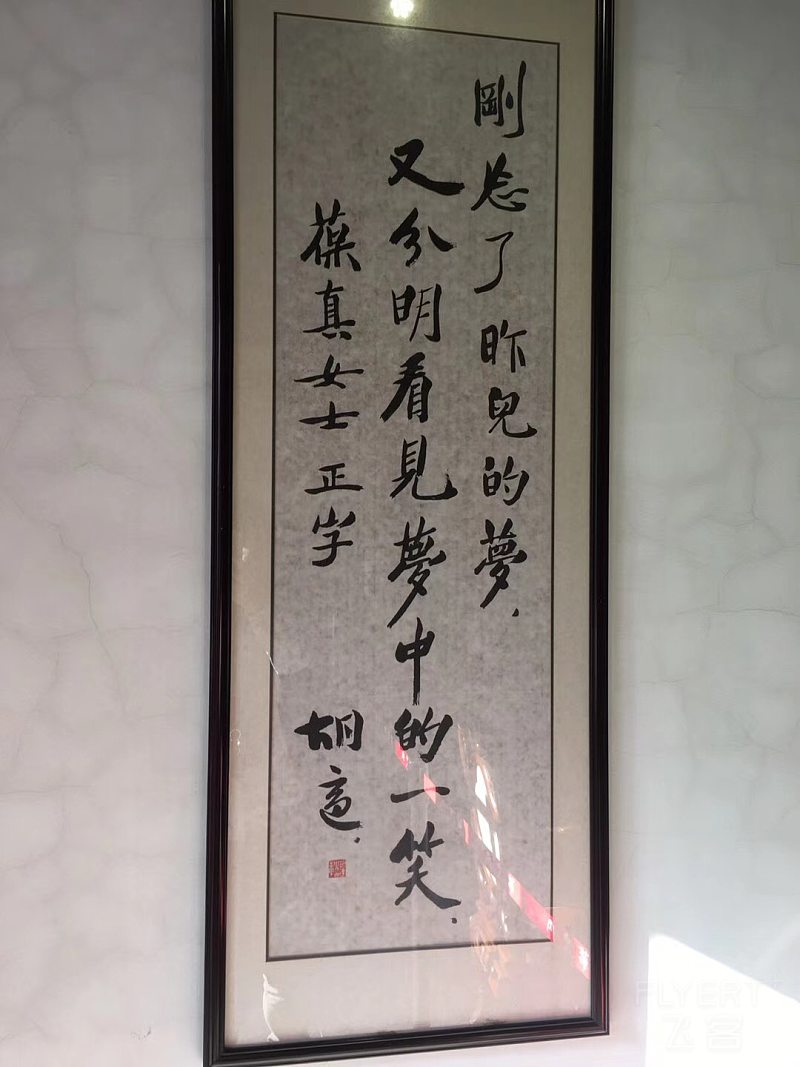 剛忘了昨兒的夢，
又分明看見夢中的一笑。
葆真女士正字
胡適．
FLYERT
飞客